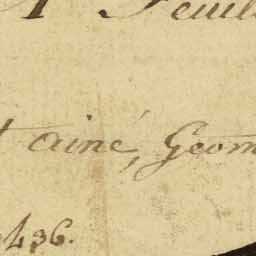 A Feuil
t ainé, Geom
436.